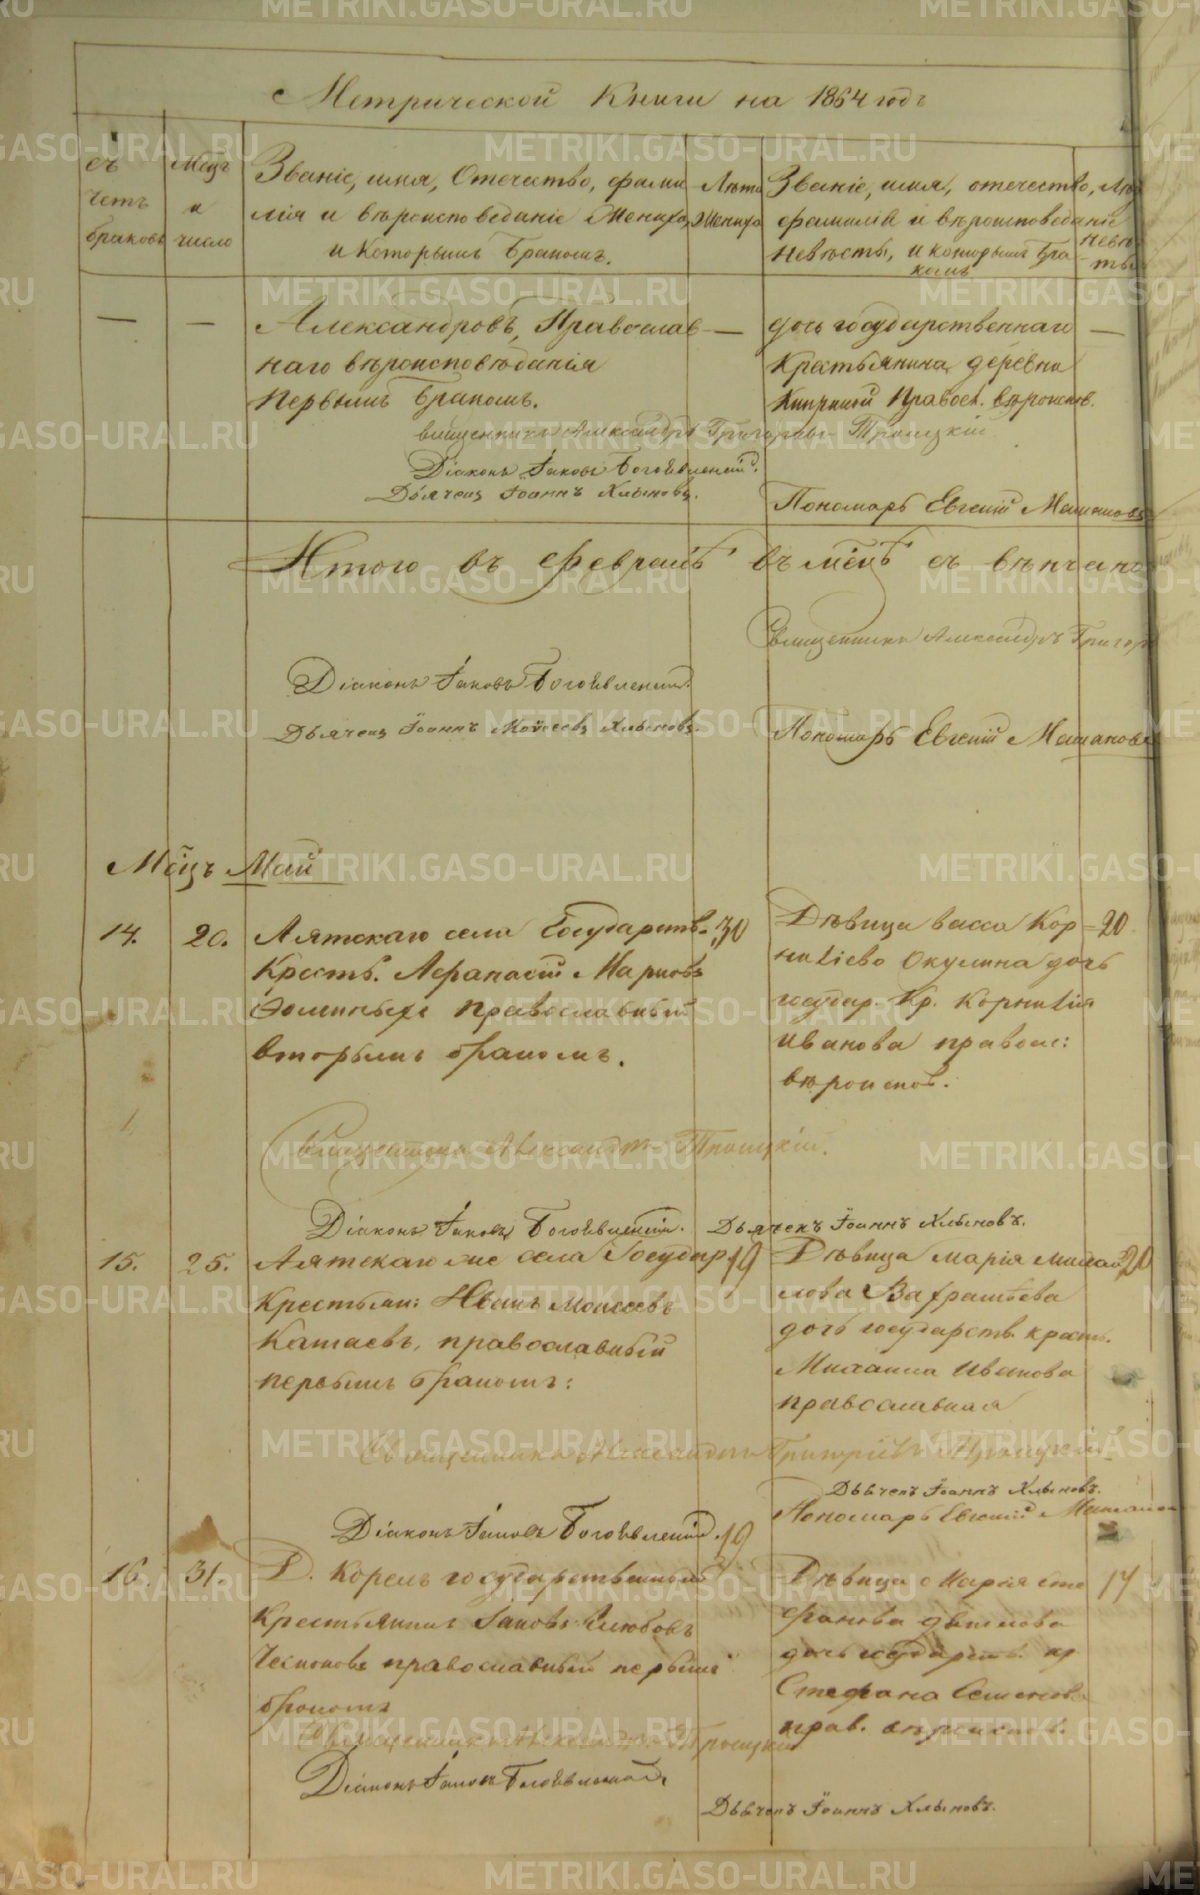 Метрической Книги на 1864 годъ
счетъ браковъ
Мѣцъ и число
Званіе, имя, Отечество, фами
лія и вѣроисповеданіе Жениха,
и Которымъ Бракомъ.
Лѣта Жениха
Званіе, имя, отечество,
фамилія и вѣроисповеданіе
Невѣсты, и которымъ Бра
комъ
Лѣта Невѣсты
— — Александровъ, Православ —
наго вѣроисповѣданія
Первымъ Бракомъ.
дочь государственнаго —
Крестьянина деревни
Правосл. вѣроиспов.
Священникъ Александръ Григорьевъ Троицкій
Діаконъ Іаковъ Богоявленскій.
Дьячекъ Іоаннъ Хлыновъ.
Пономарь Евгеній
Итого въ Февралѣ мѣцѣ
Священникъ Александръ Григор
Діаконъ Іаковъ Богоявленскій.
Дьячекъ Іоаннъ Моисеевъ Хлыновъ.
Пономарь Евгеній
Мѣцъ Май
14. 20. Аятскаго села Государств. 30
Крест. Афанасій Марковъ
православный
вторымъ бракомъ.
Дѣвица васса Кор 20
ниліево Окулина дочь
государ. Кр. Корнилія
Иванова правосл:
вѣроиспов.
Священникъ Александръ Троицкій.
Діаконъ Іаковъ Богоявленскій. Дьячекъ Іоаннъ Хлыновъ.
15. 25. Аятскаго же села Государ 19
Крестьян: Иванъ Моисеевъ
Катаевъ, православный
первымъ бракомъ:
Дѣвица Марія Михай 20
лова
дочь государств. крест.
Михаила Иванова
православная
Священникъ Александръ Григорьевъ Троицкій
Дьячекъ Іоаннъ Хлыновъ.
Пономарь Евгеній
Діаконъ Іаковъ Богоявленскій.
16. 31. Д. Корелъ государственный 19
Крестьянинъ Іаковъ
православный первымъ
бракомъ
Дѣвица Марія Сте 17
фанова
дочь государств. кр
Стефана Семенова
прав. вѣроиспов.
Священникъ Александръ Троицкій
Діаконъ Іаковъ Богоявленскій.
Дьячекъ Іоаннъ Хлыновъ.
METRIKI.GASO-URAL.RU